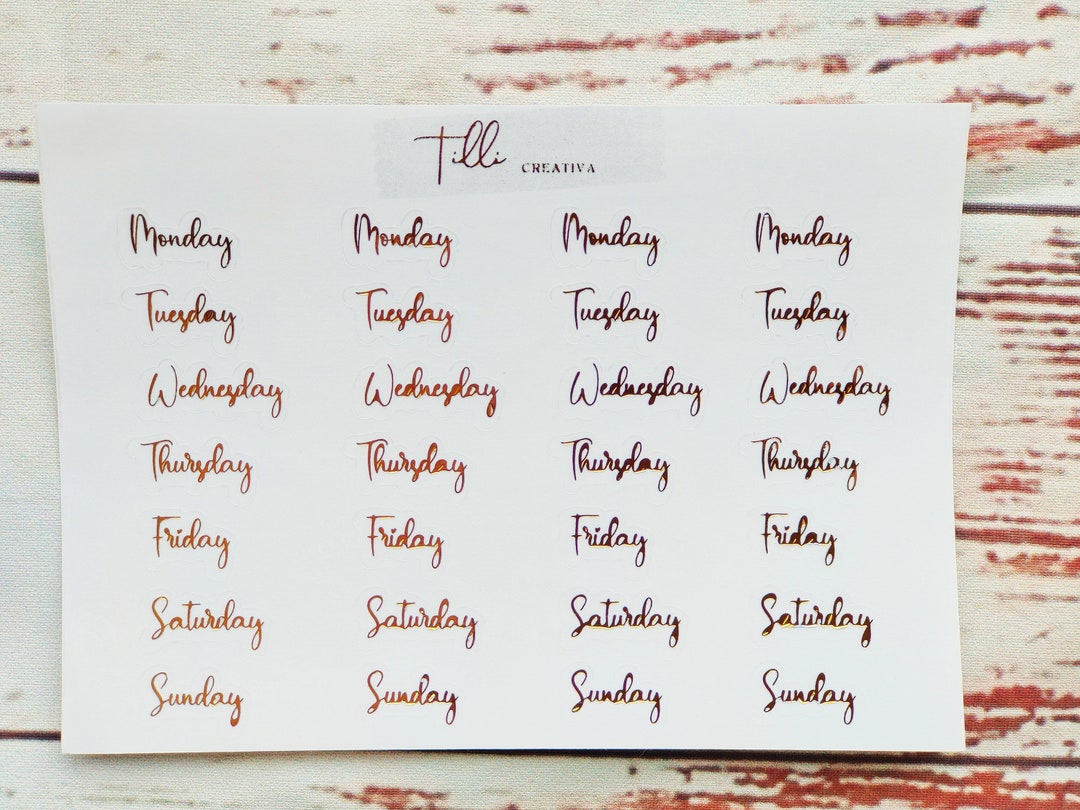 Tilli CREATIVA
Monday Monday Monday Monday
Tuesday Tuesday Tuesday Tuesday
Wednesday Wednesday Wednesday Wednesday
Thursday Thursday Thursday Thursday
Friday Friday Friday Friday
Saturday Saturday Saturday Saturday
Sunday Sunday Sunday Sunday